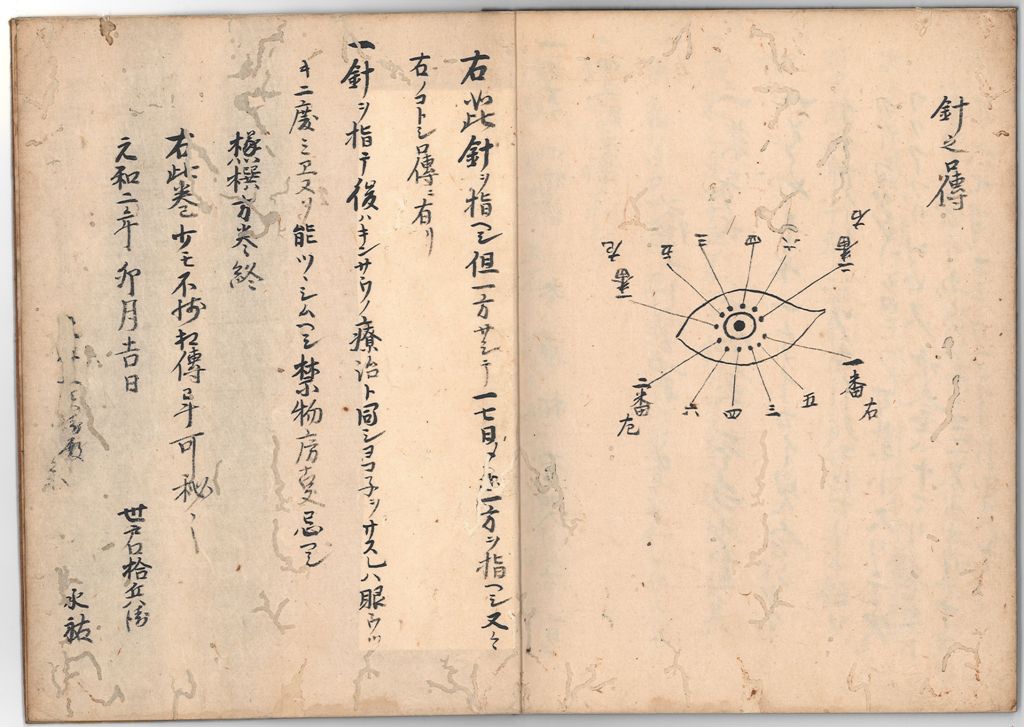 針之口傳
二番 右
六
四
三
五
一番 左
一番 右
五
三
四
六
二番 左
右此針ヲ指ヘシ但一方サシテ一七日メニ一方ヲ指ヘシ又々
右ノコトシ口傳ニ有リ
一針ヲ指テ後ハキンサウノ療治ト同シヨコ子ヲサスレハ眼
キ二度ミエヌソ能ツヽシムヘシ禁物房事忌ヘシ
方巻終
右此巻少モ不残相傳早可秘々々
元和二年卯月吉日
永祐